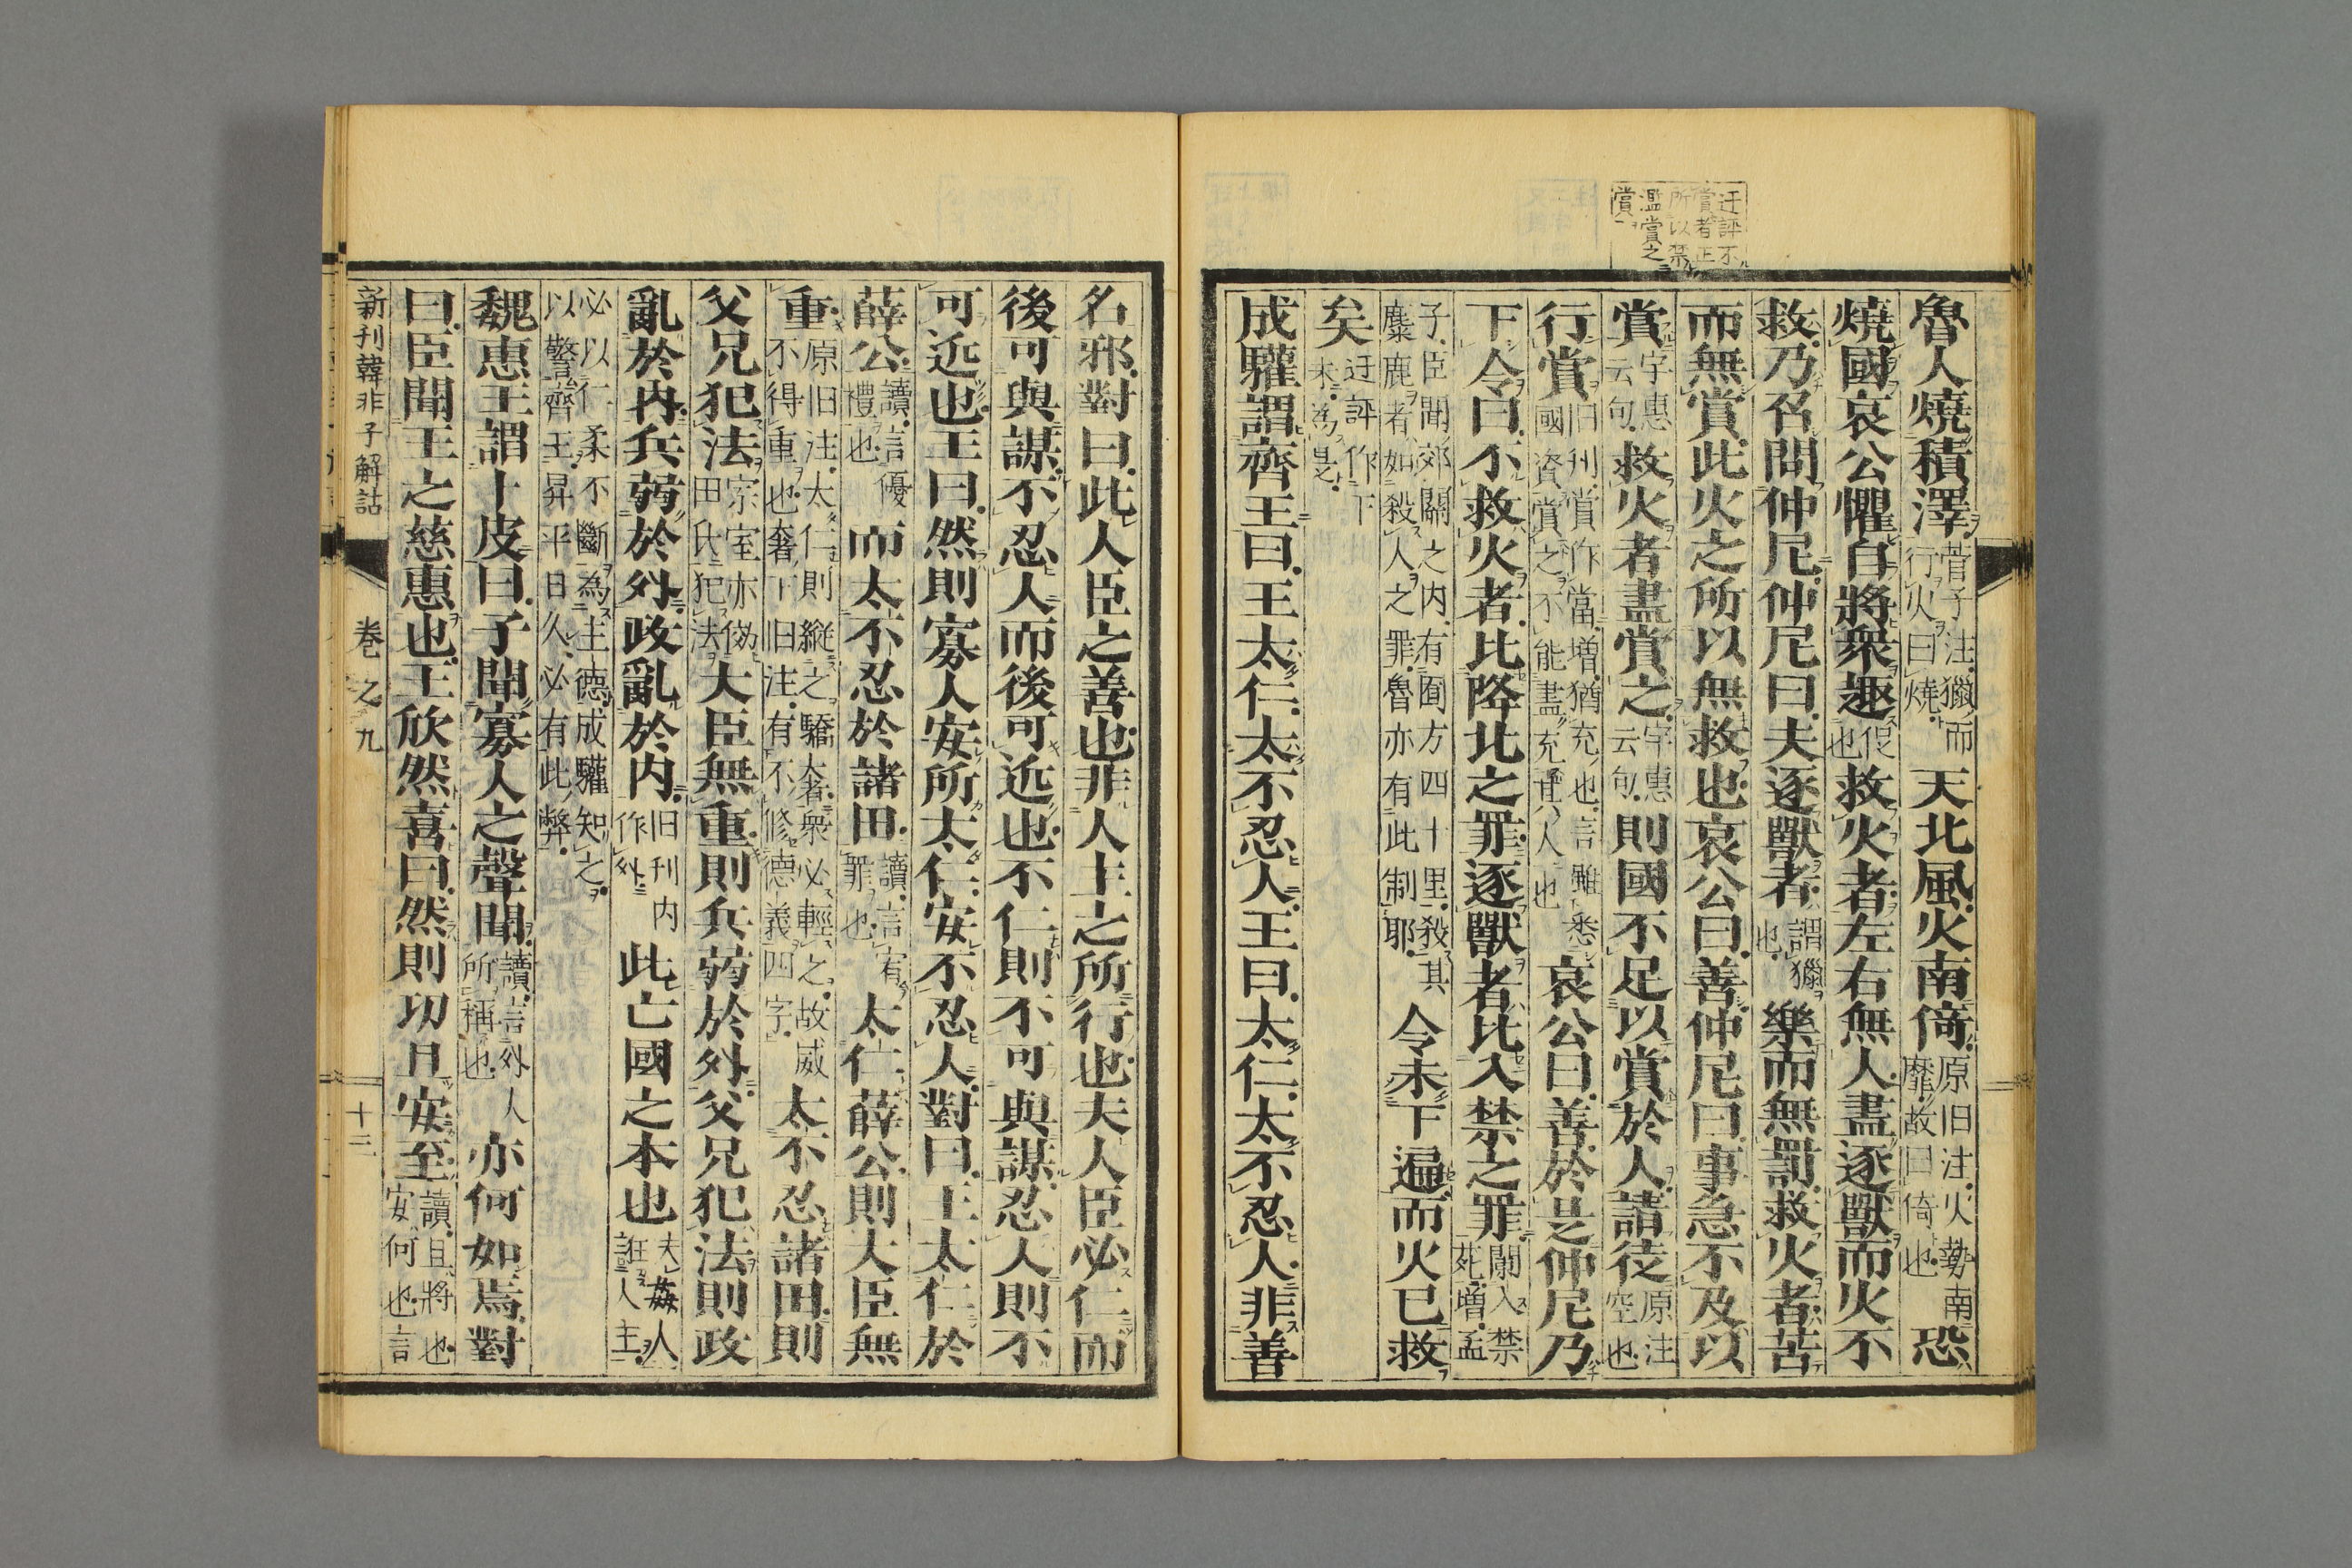 迂評不
賞者正
所以禁
濫賞之
賞
魯人燒積澤管子注獵而行火曰燒天北風火南倚原旧注火勢南靡故曰倚也恐
燒國哀公懼自將衆趣促也救火者左右無人盡逐獸而火不
救乃召問仲尼仲尼曰夫逐獸者謂獵也樂而無罰救火者苦
而無賞此火之所以無救也哀公曰善仲尼曰事急不及以
賞字惠云句救火者盡賞之字惠云句則國不足以賞於人請徒原注空也
行賞旧刊賞作當増猶充也言雖悉國資賞之不能盡充人也哀公曰善於是仲尼乃
下令曰不救火者比降北之罪逐獸者比入禁之罪闌入禁死増孟
子臣聞郊關之内有囿方四十里殺其麋鹿者如殺人之罪魯亦有此制耶令未下遍而火已救
矣迂評作下未為是
成驩謂齊王曰王太仁太不忍人王曰太仁太不忍人非善
名邪對曰此人臣之善也非人主之所行也夫人臣必仁而
後可與謀不忍人而後可近也不仁則不可與謀忍人則不
可近也王曰然則寡人安所太仁安不忍人對曰王太仁於
薛公讀言優禮也而太不忍於諸田讀言宥罪也太仁薛公則大臣無
重原旧注太仁則縱之驕奢衆必輕之故威不得重也奢下旧注有不修德義四字太不忍諸田則
父兄犯法宗室亦倣田氏犯法大臣無重則兵弱於外父兄犯法則政
亂於内兵弱於外政亂於内旧刊内作外此亡國之本也夫姦人誑人主
必以仁柔不斷為主德成驩知之以警齊王昇平日久必有此弊
魏惠王謂卜皮曰子聞寡人之聲聞讀言外人所稱也亦何如焉對
曰臣聞王之慈惠也王欣然喜曰然則功且安至讀且將也安何也言
新刊韓非子解詁　卷之九　十二